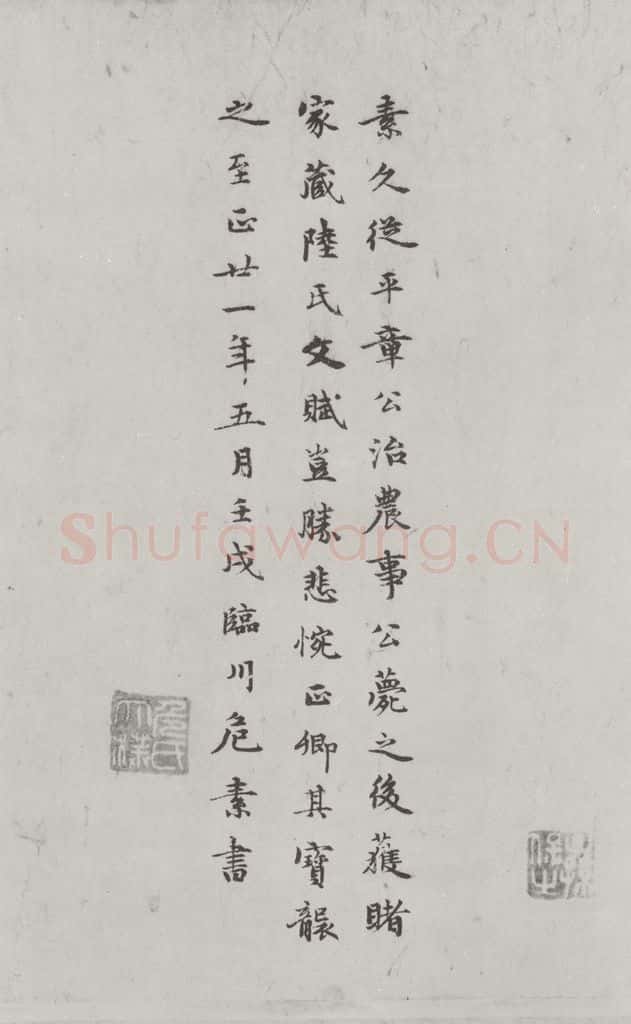 素久從平章公治農事公薨之後獲睹
家藏陸氏文賦豈勝悲惋正卿其寶襲
之至正廿一年五月壬戌臨川危素書
危氏太樸
Shufawang.CN